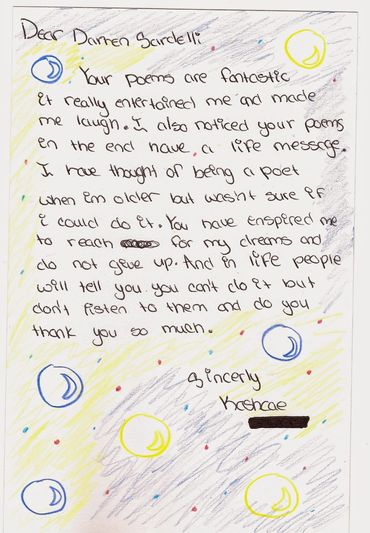 Dear Darren Sardelli
Your poems are fantastic
it really entertained me and made
me laugh. I also noticed your poems
in the end have a life message.
I have thought of being a poet
when i'm older but wasn't sure if
i could do it. You have enspired me
to reach for my dreams and
do not give up. And in life people
will tell you you can't do it but
don't listen to them and do you
thank you so much.
Sincerly